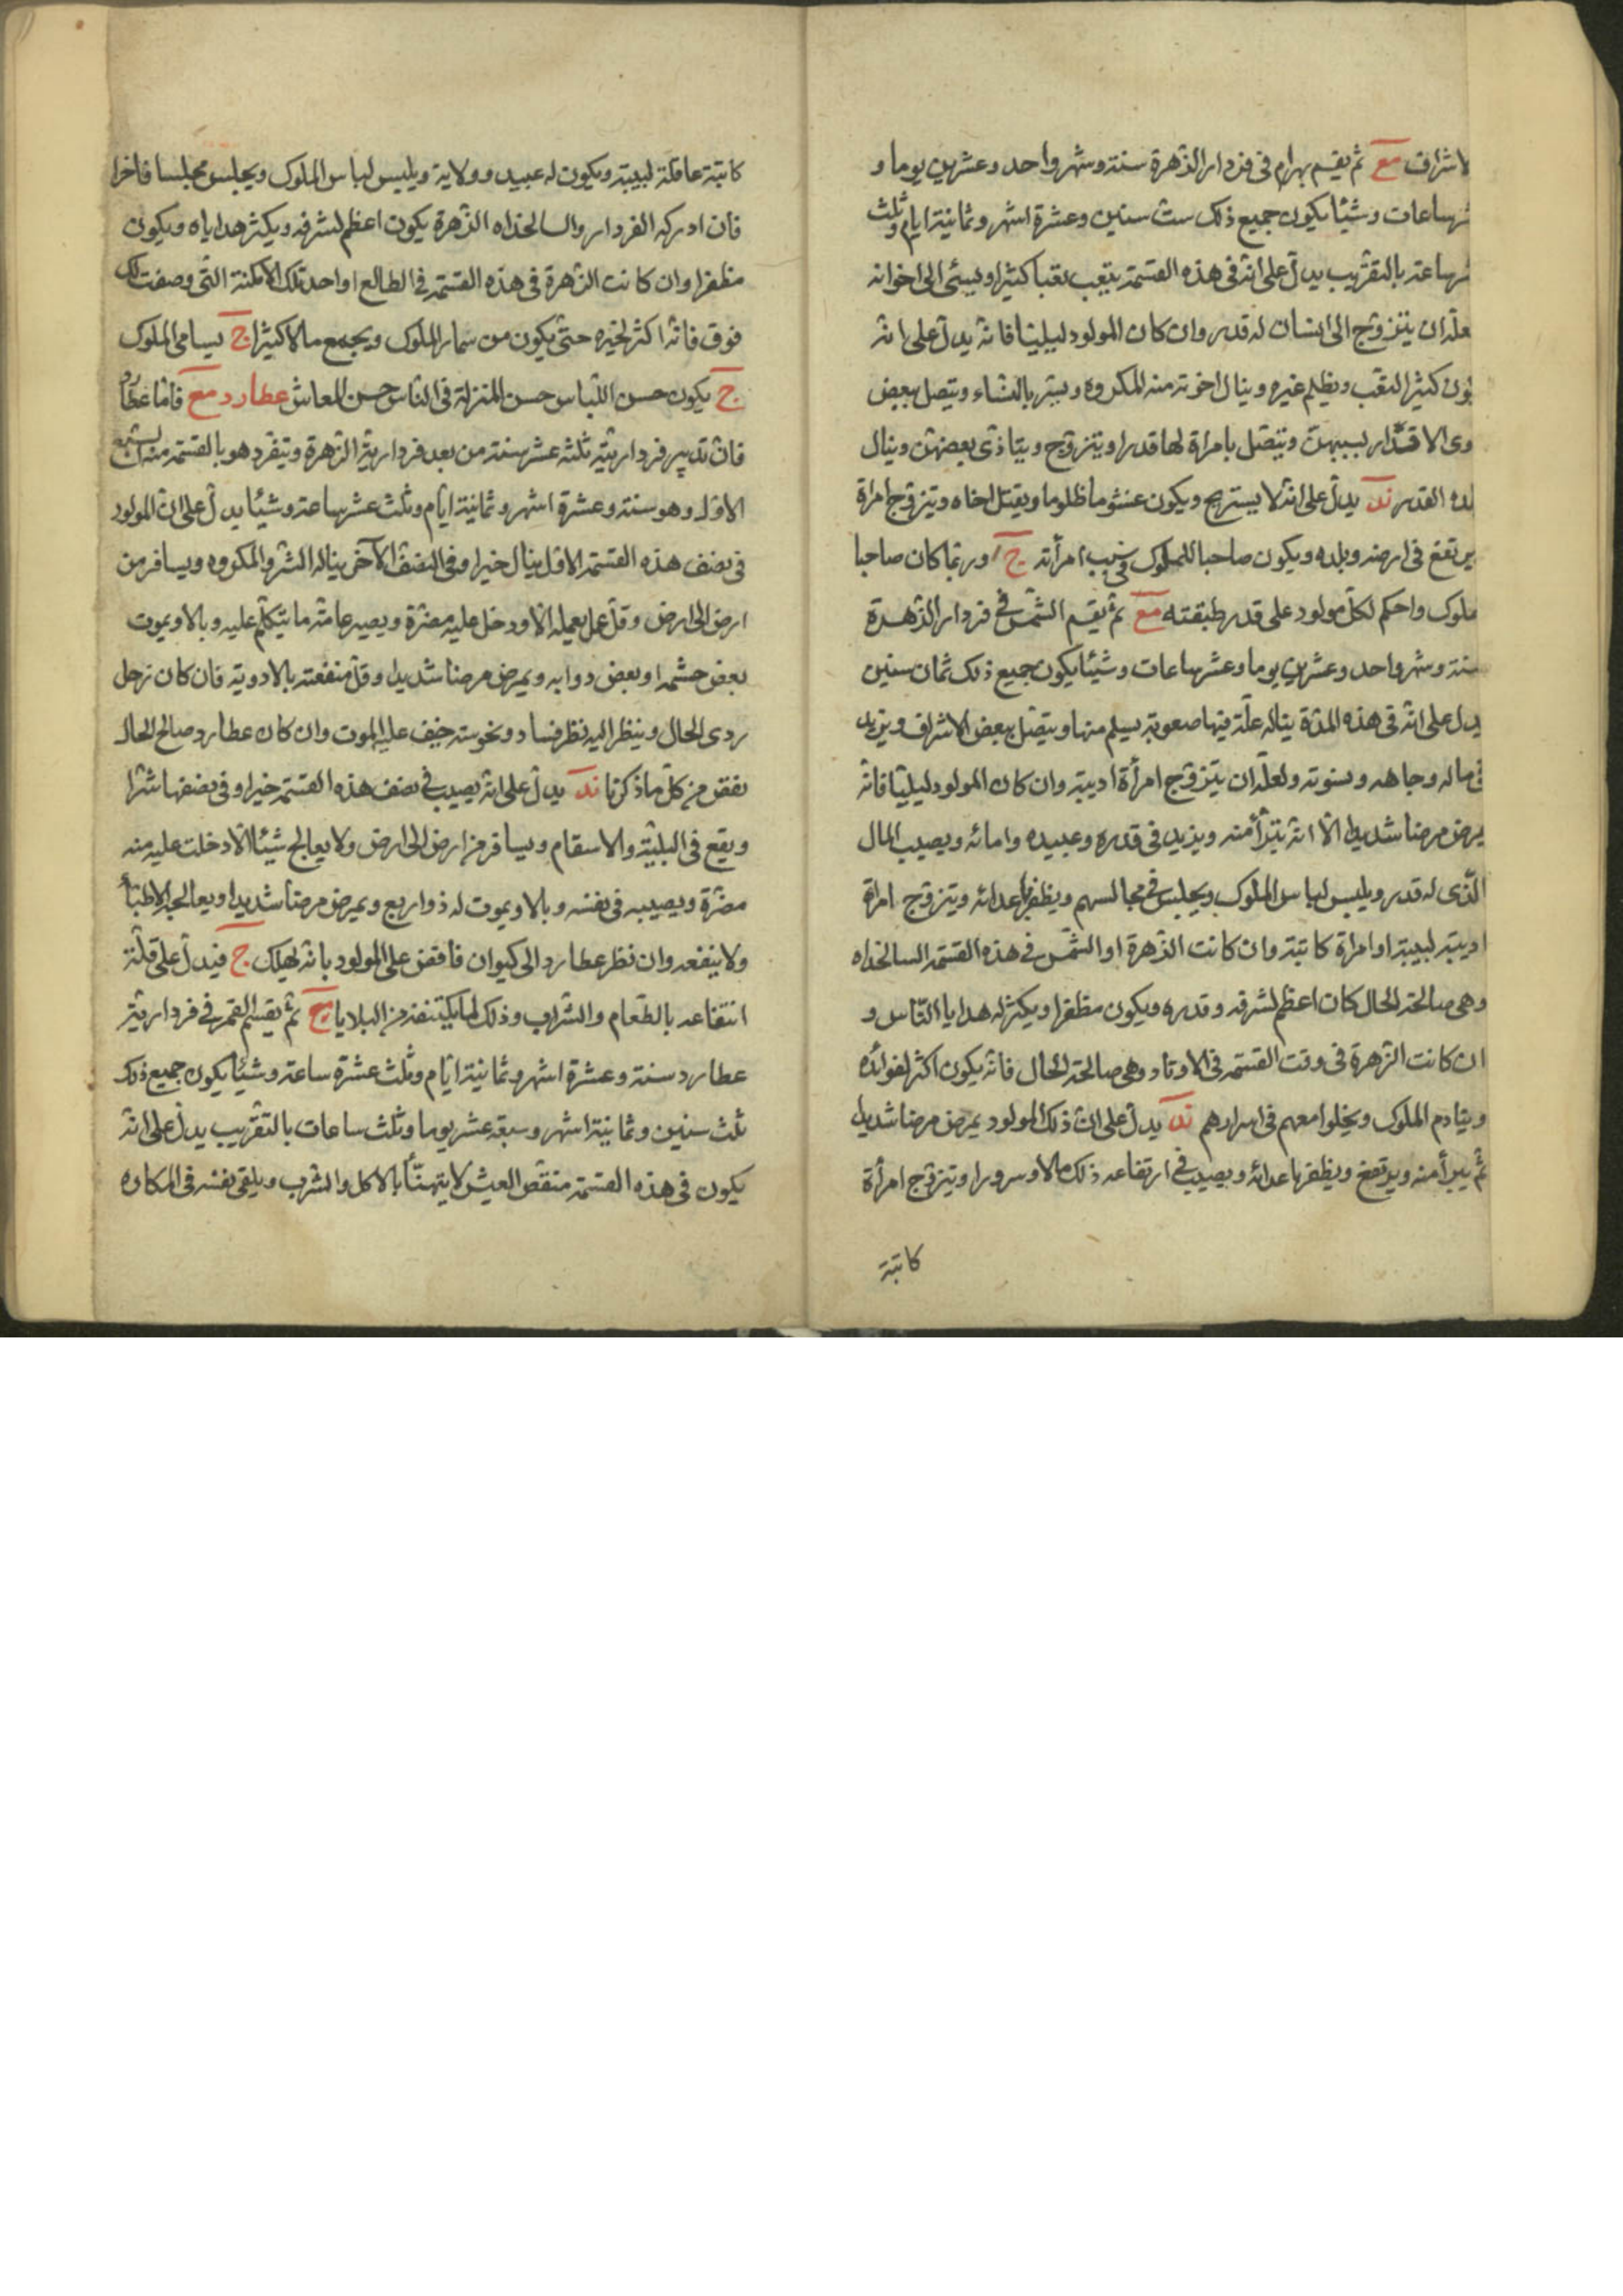 الاشراف مع ثم يقسم بهرام فى فردار الزهرة سنة وشهر واحد وعشرين يوما و
ساعات وشيئا يكون جميع ذلك ست سنين وعشرة اشهر وثمانية ايام وثلث
ساعة بالتقريب يدل على انه فى هذه القسمة يتعب تعبا كثيرا ويسئى الى اخوانه
ان يتزوج الى انسان له قدر وان كان المولود ليليا فانه يدل على انه
يكون كثير التعب ويظلم غيره وينال اخوته منه المكروه ويسر بالنساء ويتصل ببعض
ذوى الاقدار بسببهن ويتصل بامراة لها قدر ويتزوج ويتاذى ببعضهن وينال
القدر ند يدل على انه لا يستريح ويكون غشوما ظلوما ويقتل اخاه ويتزوج امراة
يرتفع فى ارضه وبلده ويكون صاحبا للملوك فى سبب امرأته ج وربما كان صاحبا
ملوك واحكم لكل مولود على قدر طبقته مع ثم يقسم الشمس فى فردار الزهرة
سنة وشهر واحد وعشرين يوما وعشر ساعات وشيئا يكون جميع ذلك ثمان سنين
يدل على انه فى هذه المدة يناله علة فيها صعوبة يسلم منها ويتصل ببعض الاشراف ويزيد
فى ماله وجاهه ونسوته ولعله ان يتزوج امرأة اديبة وان كان المولود ليليا فانه
يمرض مرضا شديدا الا انه يتبرأ منه ويزيد فى قدره وعبيده وامائه ويصيب المال
الذى له قدر ويلبس لباس الملوك ويجلس فى مجالسهم ويظفر باعدائه ويتزوج امراة
اديبة لبيبة او امراة كاتبة وان كانت الزهرة او الشمس فى هذه القسمة السالخداه
وهى صالحة الحال كان اعظم لشرفه وقدره ويكون مظفرا ويكثر له هدايا الناس و
ان كانت الزهرة فى وقت القسمة فى الاوتاد وهى صالحة الحال فانه يكون اكثر لفوائده
وينادم الملوك ويخلوا معهم فى اسرارهم ند يدل على ان ذلك المولود يمرض مرضا شديدا
ثم يبرأ منه ويرتفع ويظفر باعدائه ويصيب فى ارتفاعه ذلك مالا وسرورا ويتزوج امرأة
كاتبة
كاتبة عاقلة لبيبة ويكون له عبيد وولاية ويلبس لباس الملوك ويجلس مجلسا فاخرا
فان ادركه الفردار والسالخداه الزهرة يكون اعظم لشرفه ويكثر هداياه ويكون
مظفرا وان كانت الزهرة فى هذه القسمة فى الطالع او احد تلك الامكنة التى وصفت لك
فوق فانه اكثر لخيره حتى يكون من سمار الملوك ويجمع مالا كثيرا ج يسامى الملوك
ج يكون حسن اللباس حسن المنزلة فى الناس حسن المعاش عطارد مع فاما عطارد
فان تدبير فرداريته ثلثة عشر سنة من بعد فردارية الزهرة ويتفرد هو بالقسمة منه السبع
الاول وهو سنة وعشرة اشهر وثمانية ايام وثلث عشر ساعة وشيئا يدل على ان المولود
فى نصف هذه القسمة الاول ينال خيرا وفى النصف الآخر يناله الشر والمكروه ويسافر من
ارض الى ارض وقل عمل يعمله الا ودخل عليه مضرة ويصير عامة ما يتكلم عليه وبالا ويموت
بعض حشمه او بعض دوابه ويمرض مرضا شديدا وقل منفعته بالادوية فان كان زحل
ردى الحال وينظر اليه نظر فساد ونحوسة خيف عليه الموت وان كان عطارد صالح الحال
نقص من كل ما ذكرنا ند يدل على انه يصيب فى نصف هذه القسمة خيرا وفى نصفها شرا
ويقع فى البلية والاسقام ويسافر من ارض الى ارض ولا يعالج شيئا الا دخلت عليه منه
مضرة ويصيبه فى نفسه وبالا ويموت له ذو اربع ويمرض مرضا شديدا ويعالجه الاطباء
ولا ينفعه وان نظر عطارد الى كيوان فاقض على المولود بانه يهلك ج فيدل على قلة
انتفاعه بالطعام والشراب وذلك لما يكتنفه من البلايا مع ثم يقسم القمر فى فردارية
عطارد سنة وعشرة اشهر وثمانية ايام وثلث عشرة ساعة وشيئا يكون جميع ذلك
ثلث سنين وثمانية اشهر وسبعة عشر يوما وثلث ساعات بالتقريب يدل على انه
يكون فى هذه القسمة منغص العيش لا يتهنأ بالاكل والشرب ويلقى نفسه فى المكاره